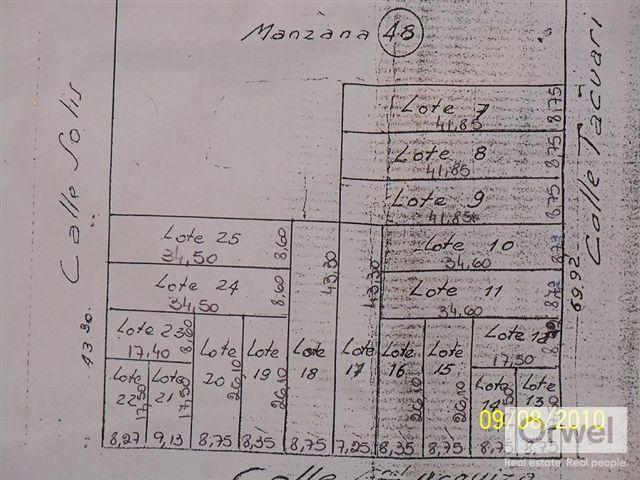 Manzana 48
Calle Solis
43.30.
Calle Tacuari
69.92
Lote 7
41,85
8,75
Lote 8
41,85
8,75
Lote 9
41,85
8,75
Lote 25
34,50
8,60
Lote 10
34,60
Lote 24
34,50
8,60
Lote 11
34,60
43,30
43,30
Lote 23
17,40
8,60
Lote 12
17,50
Lote 22
17,50
Lote 21
17,50
Lote 20
26,10
Lote 19
26,10
Lote 18
Lote 17
Lote 16
26,10
Lote 15
26,10
Lote 14
Lote 13
8,27
9,13
8,75
8,35
8,75
7,25
8,35
8,75
8,75
09/08/2010
Orwel
Real estate. Real people.
Calle